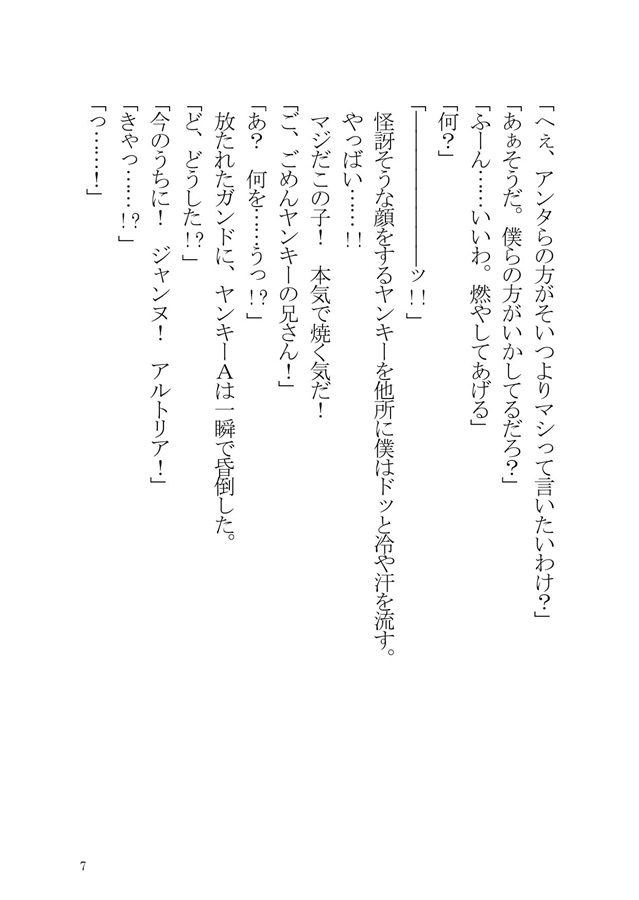 「へぇ、アンタらの方がそいつよりマシって言いたいわけ？」
「あぁそうだ。僕らの方がいかしてるだろ？」
「ふーん……いいわ。燃やしてあげる」
「何？」
「――――――――ッ!!」
怪訝そうな顔をするヤンキーを他所に僕はドッと冷や汗を流す。
やっばい……!!
マジだこの子！　本気で焼く気だ！
「ご、ごめんヤンキーの兄さん！」
「あ？　何を……うっ!?」
放たれたガンドに、ヤンキーＡは一瞬で昏倒した。
「ど、どうした!?」
「今のうちに！　ジャンヌ！　アルトリア！」
「きゃっ……!?」
「っ……！」
7